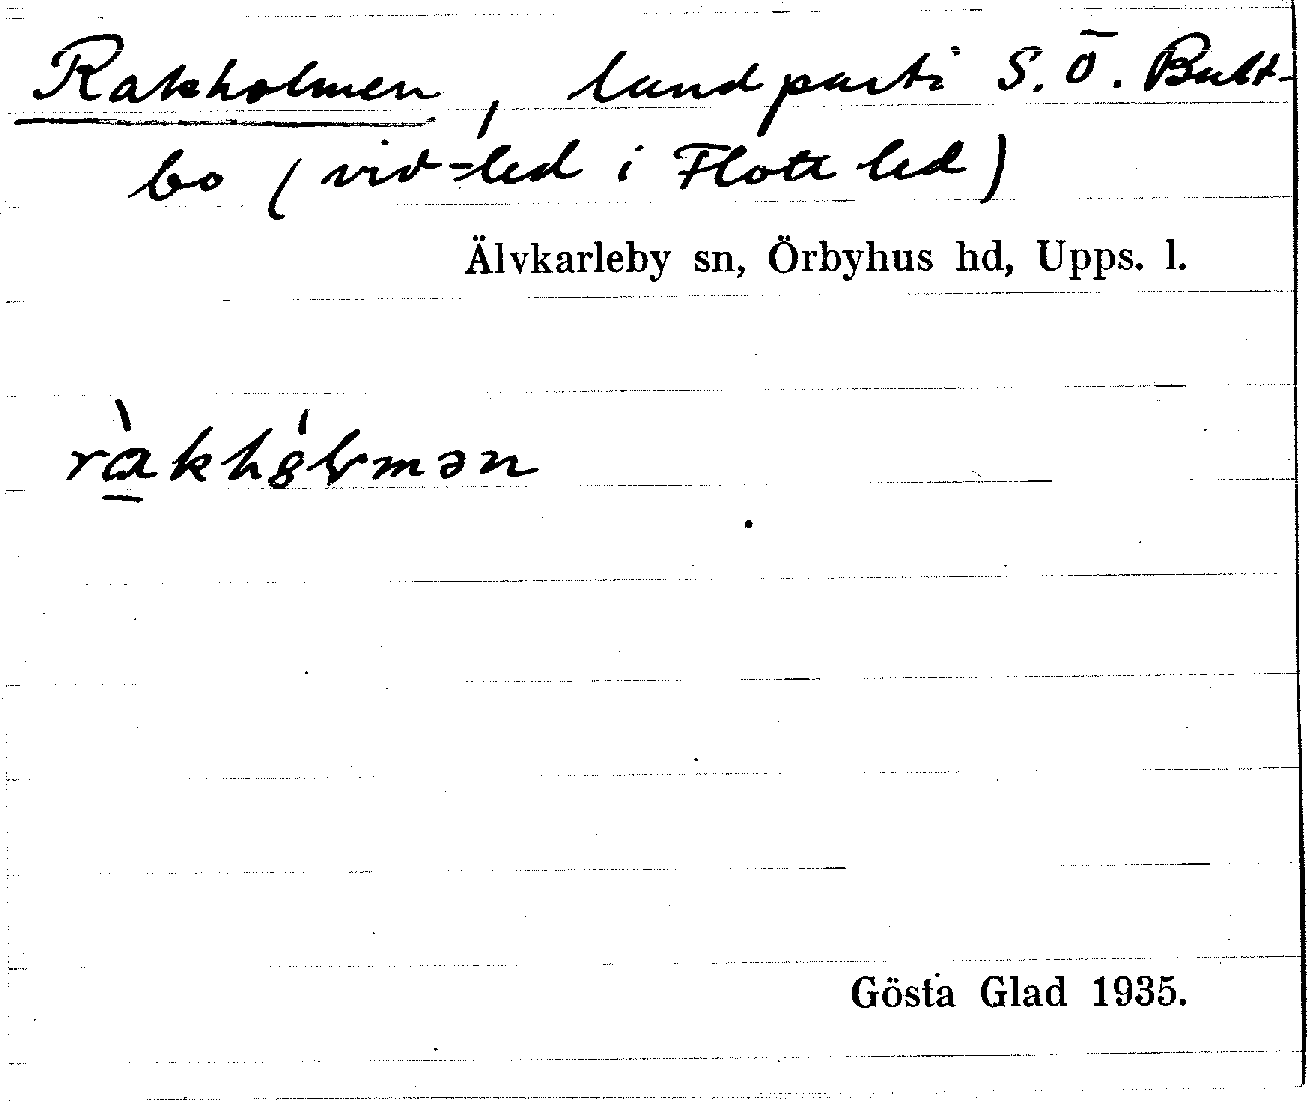 Rakholmen, landparti S.Ö. Butt-
bo (vid =led i Flottled)
Älvkarleby sn, Örbyhus hd, Upps. l.
ràkhólmən
Gösta Glad 1935.